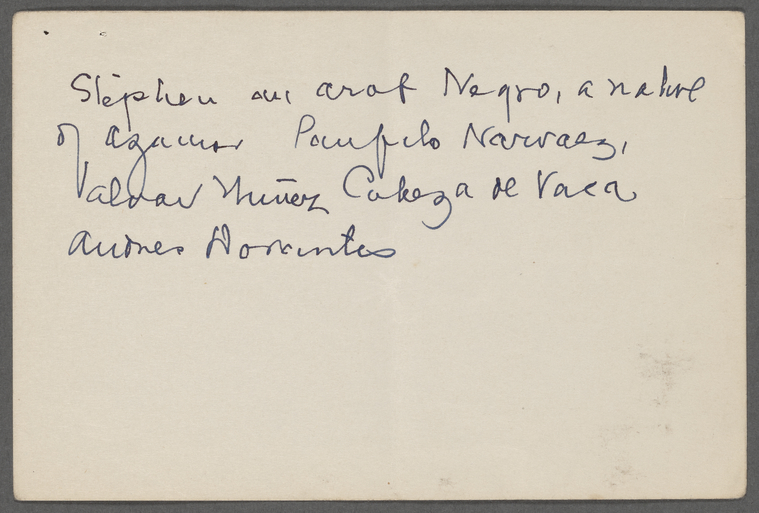 Stephen an arab Negro, a native
of Azamor Panfilo Narvaez,
Alvar Nuñez Cabeza de Vaca
Andres Dorantes